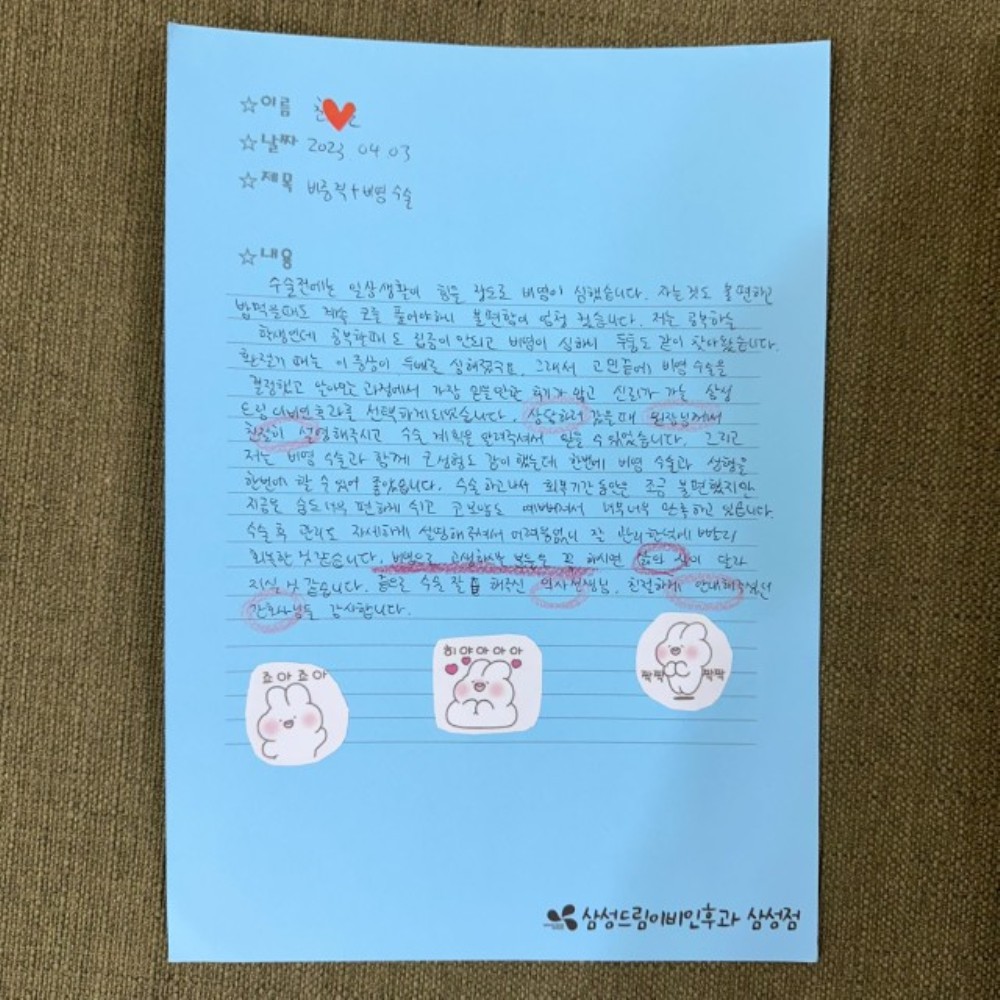 ☆이름
☆날짜 2023 04 03
☆제목 비중격+비염 수술
☆내용
수술전에는 일상생활이 힘들 정도로 비염이 심했습니다. 자는것도 불편하고
밥먹을때도 계속 코를 풀어야하니 불편함이 엄청 컸습니다. 저는 공부하는
학생인데 공부할때도 집중이 안되고 비염이 심하니 두통도 같이 찾아왔습니다.
환절기 때는 이 증상이 두배로 심해졌구요. 그래서 고민끝에 비염 수술을
결정했고 알아보는 과정에서 가장 믿을만한 후기가 많고 신뢰가 가는 삼성
드림이비인후과를 선택하게되었습니다. 상담하러 갔을때 원장님께서
친절히 설명해주시고 수술 계획을 알려주셔서 믿을 수 있었습니다. 그리고
저는 비염 수술과 함께 코성형도 같이 했는데 한번에 비염 수술과 성형을
한번에 할 수 있어 좋았습니다. 수술 하고나서 회복기간 동안은 조금 불편했지만
지금은 숨도 너무 편하게 쉬고 코모양도 예뻐져서 너무너무 만족하고 있습니다.
수술 후 관리도 자세하게 설명해주셔서 어려움없이 잘 관리한덕에 빨리
회복한 것 같습니다. 비염으로 고생하시는 분들은 꼭 하시면 삶의 질이 달라
지실 것 같습니다. 좋은 수술 잘 해주신 의사선생님, 친절하게 안내해주셨던
간호사님들 감사합니다.
히야아아아
죠아죠아
짝짝 짝짝
삼성드림이비인후과 삼성점